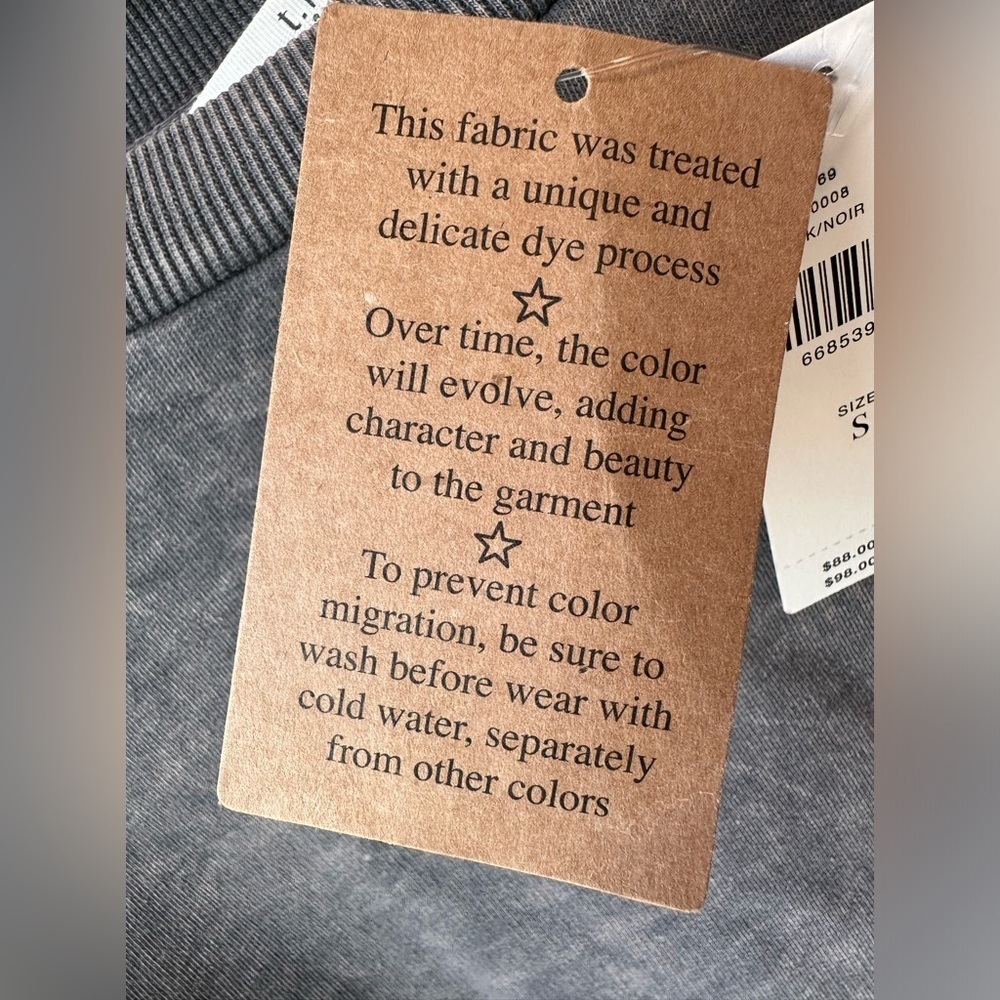 This fabric was treated
with a unique and
delicate dye process
Over time, the color
will evolve, adding
character and beauty
to the garment
To prevent color
migration, be sure to
wash before wear with
cold water, separately
from other colors
69
0008
K/NOIR
668539
SIZE
S
$88.00
$98.00